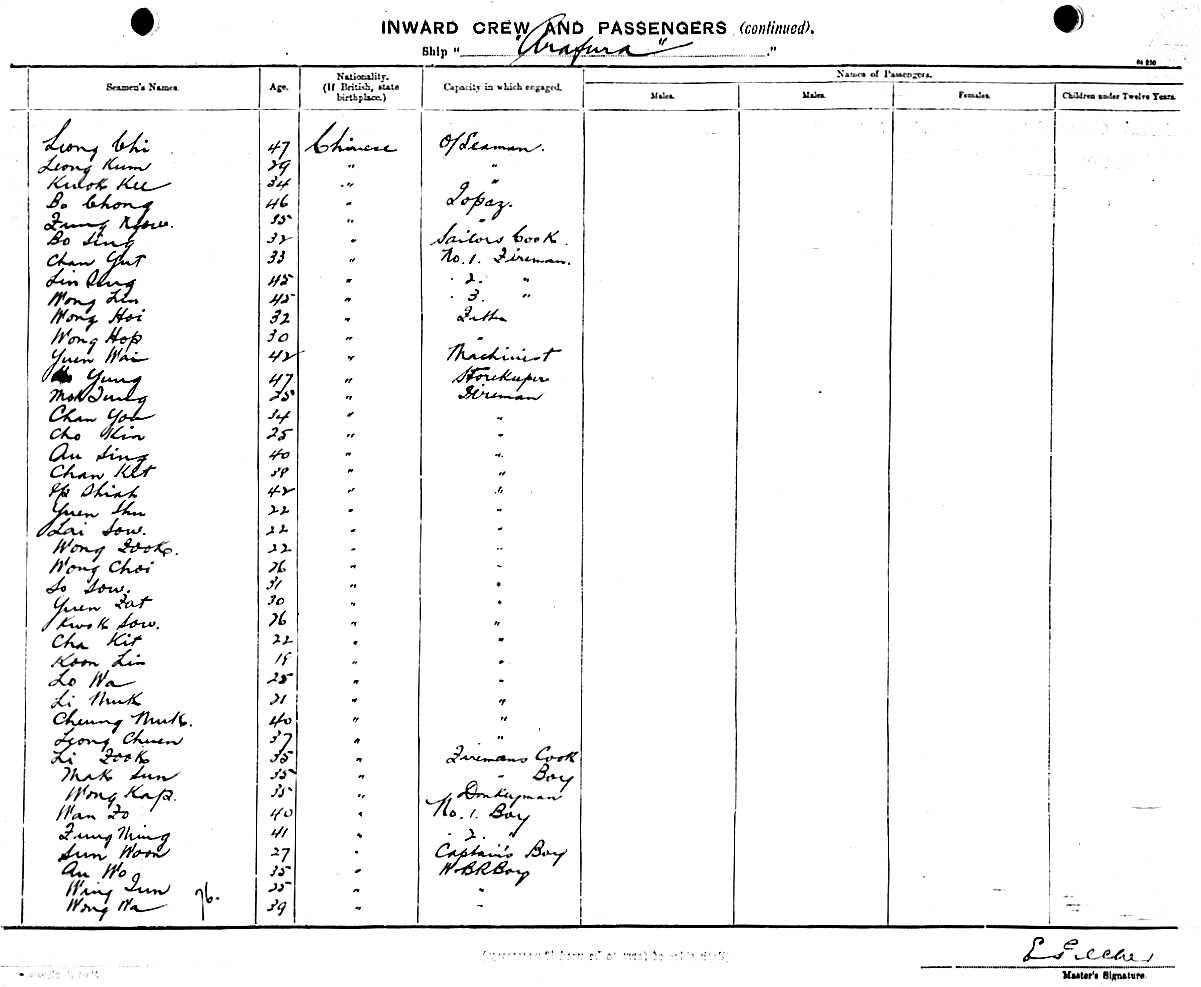 INWARD CREW AND PASSENGERS (continued).
Ship "Arafura"
Seamen's Names. Age. Nationality. (If British, state birthplace.) Capacity in which engaged. Names of Passengers.
Males. Males. Females. Children under Twelve Years.
Leong Chi 47 Chinese O/Seaman.
Leong Kum 29 " "
Kwok Kee 34 " "
Bo Chong 46 " Topaz.
Fung 35 " "
Bo Sing 32 " Sailors Cook.
Chan Yut 33 " No. 1. Fireman.
Lin 45 " " 2. "
Wong Lin 45 " " 3. "
Wong Hoi 32 "
Wong Hop 30 " "
Yuen Wai 42 " Machinist
Yung 47 " Storekeeper
Mok Tung 25 " Fireman
Chan You 34 " "
Cho Kin 25 " "
Au Sing 40 " "
Chan Kit 38 " "
Ip Shiah 42 " "
Yuen Shu 22 " "
Lai Sow. 22 " "
Wong Fook. 22 " "
Wong Choi 26 " "
So Sow. 31 " "
Yuen Fat 30 " "
Kwok Sow. 26 " "
Cha Kit 22 " "
Koon Lin 19 " "
Lo Wa 25 " "
Li Muk 21 " "
Cheung Muk. 40 " "
Leong Chuen 37 " "
Li Fook 35 " Firemans Cook
Mak Sun 35 " " Boy
Wong Kap. 35 " Donkeyman
Wan Fo 40 " No. 1. Boy
Fung Ming 41 " " 2. "
Sun Woon 27 " Captain's Boy
Au Wo 35 " W.B.R Boy
Wing Tun 25 " "
Wong Wa 76. 39 " "
Master's Signature.